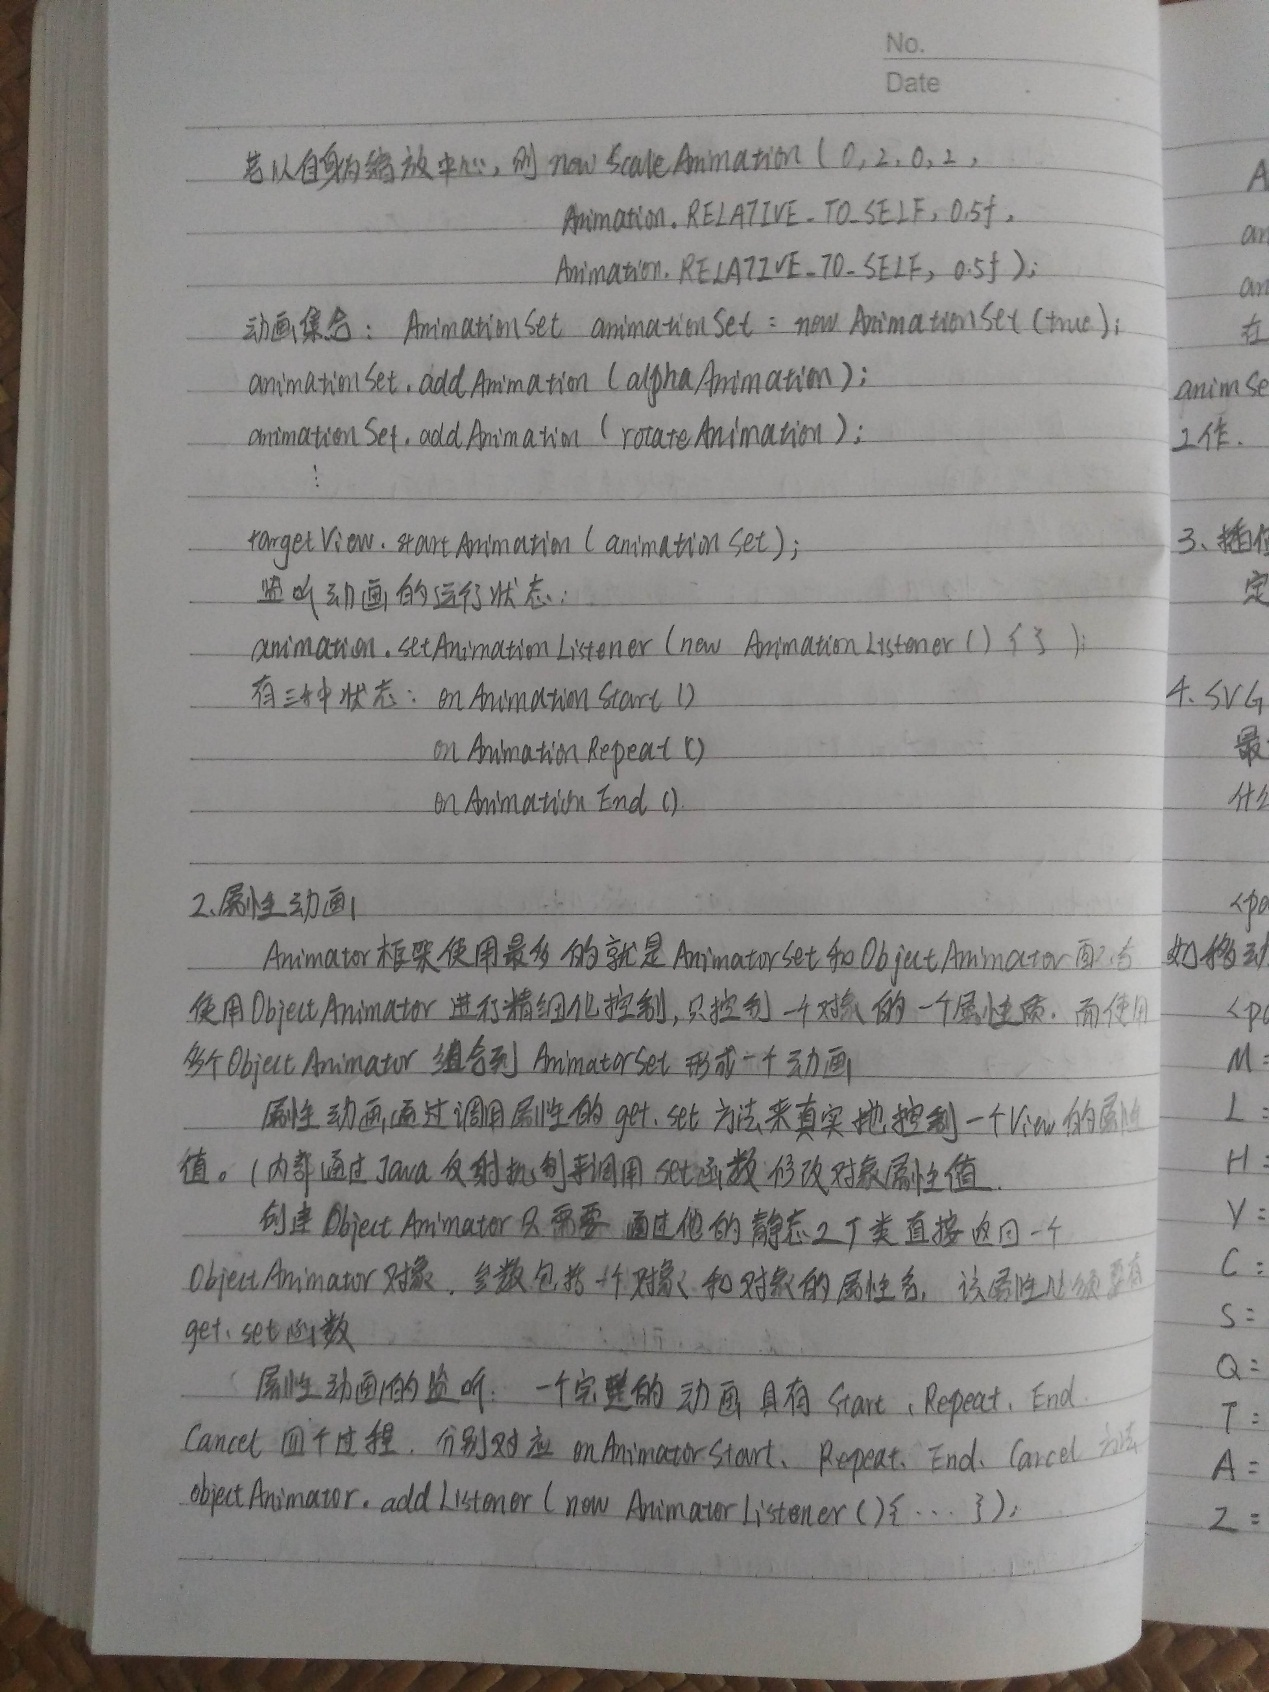 No.
Date
若以自身为缩放中心，则 new Scale Animation ( 0, 2, 0, 2,
Animation. RELATIVE_TO_SELF, 0.5f,
Animation. RELATIVE_TO_SELF, 0.5f );
动画集合: AnimationSet animationSet = new AnimationSet (true);
animationSet. addAnimation (alphaAnimation);
animationSet. addAnimation (rotateAnimation);
⋮
targetView. startAnimation (animationSet);
监听动画的运行状态:
animation. setAnimationListener (new AnimationListener () { } );
有三种状态: onAnimationStart ()
onAnimationRepeat ()
onAnimationEnd ()
2、属性动画
Animator框架使用最多的就是AnimatorSet和ObjectAnimator配合
使用ObjectAnimator进行精细化控制，只控制一个对象的一个属性质. 而使用
多个ObjectAnimator 组合到 AnimatorSet 形成一个动画
属性动画通过调用属性的 get、set 方法来真实地控制一个View的属性
值。(内部通过Java反射机制来调用set函数修改对象属性值.
创建ObjectAnimator只需要通过他的静态工厂类直接返回一个
ObjectAnimator对象. 参数包括一个对象和对象的属性名. 该属性必须要有
get、set函数
属性动画的监听: 一个完整的动画具有 Start、Repeat、End
Cancel 四个过程. 分别对应 onAnimatorStart、Repeat、End、Cancel 方法
objectAnimator. addListener (new AnimatorListener (){ ... });
A
an
an
在
animSe
工作.
3、插值
定
4. SVG
最
什么
<pa
如移动
<pa
M=
L=
H=
V=
C=
S=
Q=
T=
A=
Z=